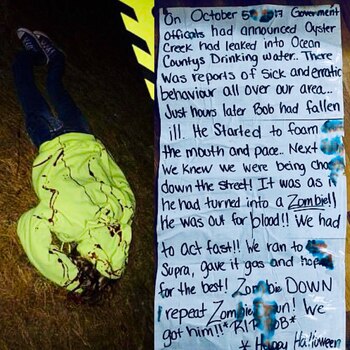 On October 5th 2017 Goverment
officals had announced Oyster
Creek had leaked into Ocean
Countys Drinking water.. There
was reports of Sick and erratic
behaviour all over our area...
Just hours later Bob had fallen
ill. He Started to foam
the mouth and pace. Next
we knew we were being
down the street! It was as
he had turned into a Zombie!!
he was out for blood!! We had
to act fast!! We ran to
Supra, gave it gas and
for the best! Zombie DOWN
I repeat Zombie! We
got him!! *RIP BOB*
* Happy Halloween